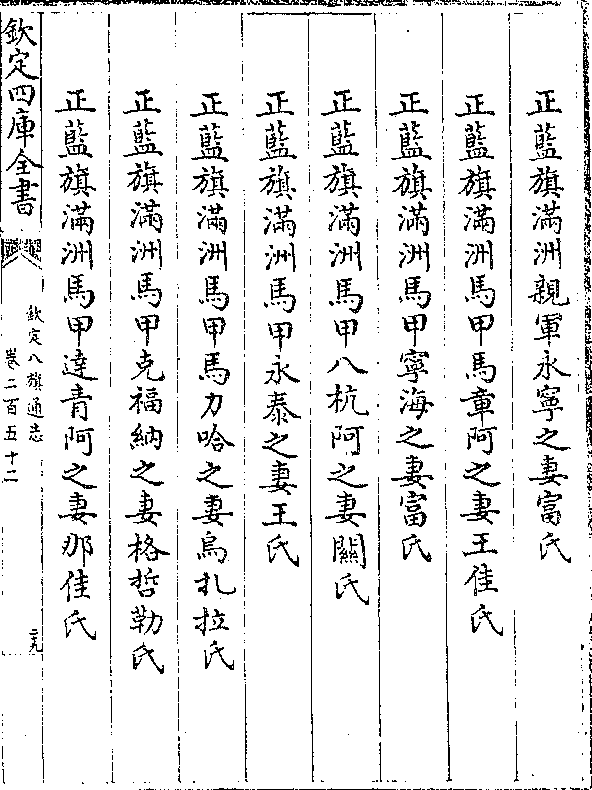 正藍旗滿洲親軍永寧之妻富氏
正藍旗滿洲馬甲馬章阿之妻王佳氏
正藍旗滿洲馬甲寧海之妻富氏
正藍旗滿洲馬甲八杭阿之妻關氏
正藍旗滿洲馬甲永泰之妻王氏
正藍旗滿洲馬甲馬力哈之妻烏扎拉氏
正藍旗滿洲馬甲克福納之妻格哲勒氏
正藍旗滿洲馬甲達青阿之妻那佳氏
欽定四庫全書
欽定八旗通志
卷二百五十二
二十九